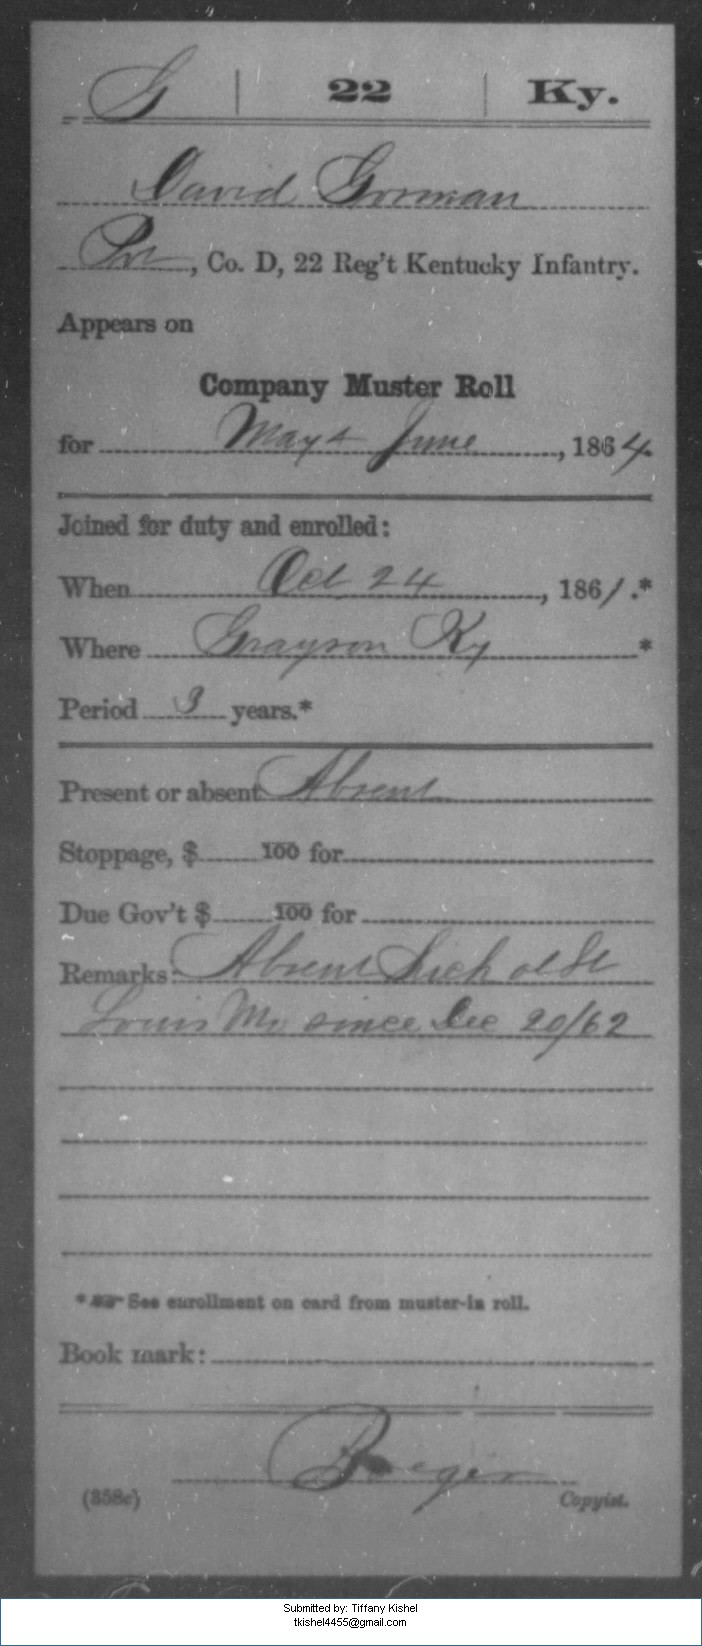 G | 22 | Ky.
David Gorman
Pvt, Co. D, 22 Reg't Kentucky Infantry.
Appears on
Company Muster Roll
for May & June, 1864.
Joined for duty and enrolled:
When Oct 24, 1861.*
Where Grayson Ky *
Period 3 years.*
Present or absent Absent
Stoppage, $ 100 for
Due Gov't $ 100 for
Remarks: Absent Sick at St
Louis Mo since Dec 20/62
* See enrollment on card from muster-in roll.
Book mark:
(358c) Copyist.
Submitted by: Tiffany Kishel
tkishel4455@gmail.com